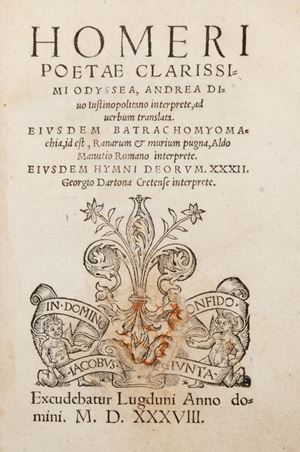 HOMERI
POETAE CLARISSI-
MI ODYSSEA, ANDREA DI-
uo Iustinopolitano interprete, ad
uerbum translata.
EIVSDEM BATRACHOMYOMA-
chia, id est, Ranarum & murium pugna, Aldo
Manutio Romano interprete.
EIVSDEM HYMNI DEORVM. XXXII.
Georgio Dartona Cretense interprete.
IN·DOMIN
CONFIDO
IACOBVS
IVNTA·
Excudebatur Lugduni Anno do-
mini. M. D. XXXVIII.